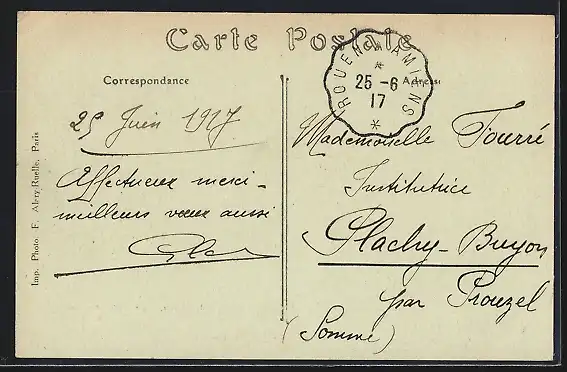 Carte Postale
Correspondance
Adresse
ROUEN A AMIENS
25 - 6
17
25 Juin 1917
Affectueux merci -
meilleurs vœux aussi
Mademoiselle Fourré
Institutrice
Plachy-Buyon
par Prouzel
(Somme)
Imp. Photo. F. Alery-Ruelle, Paris